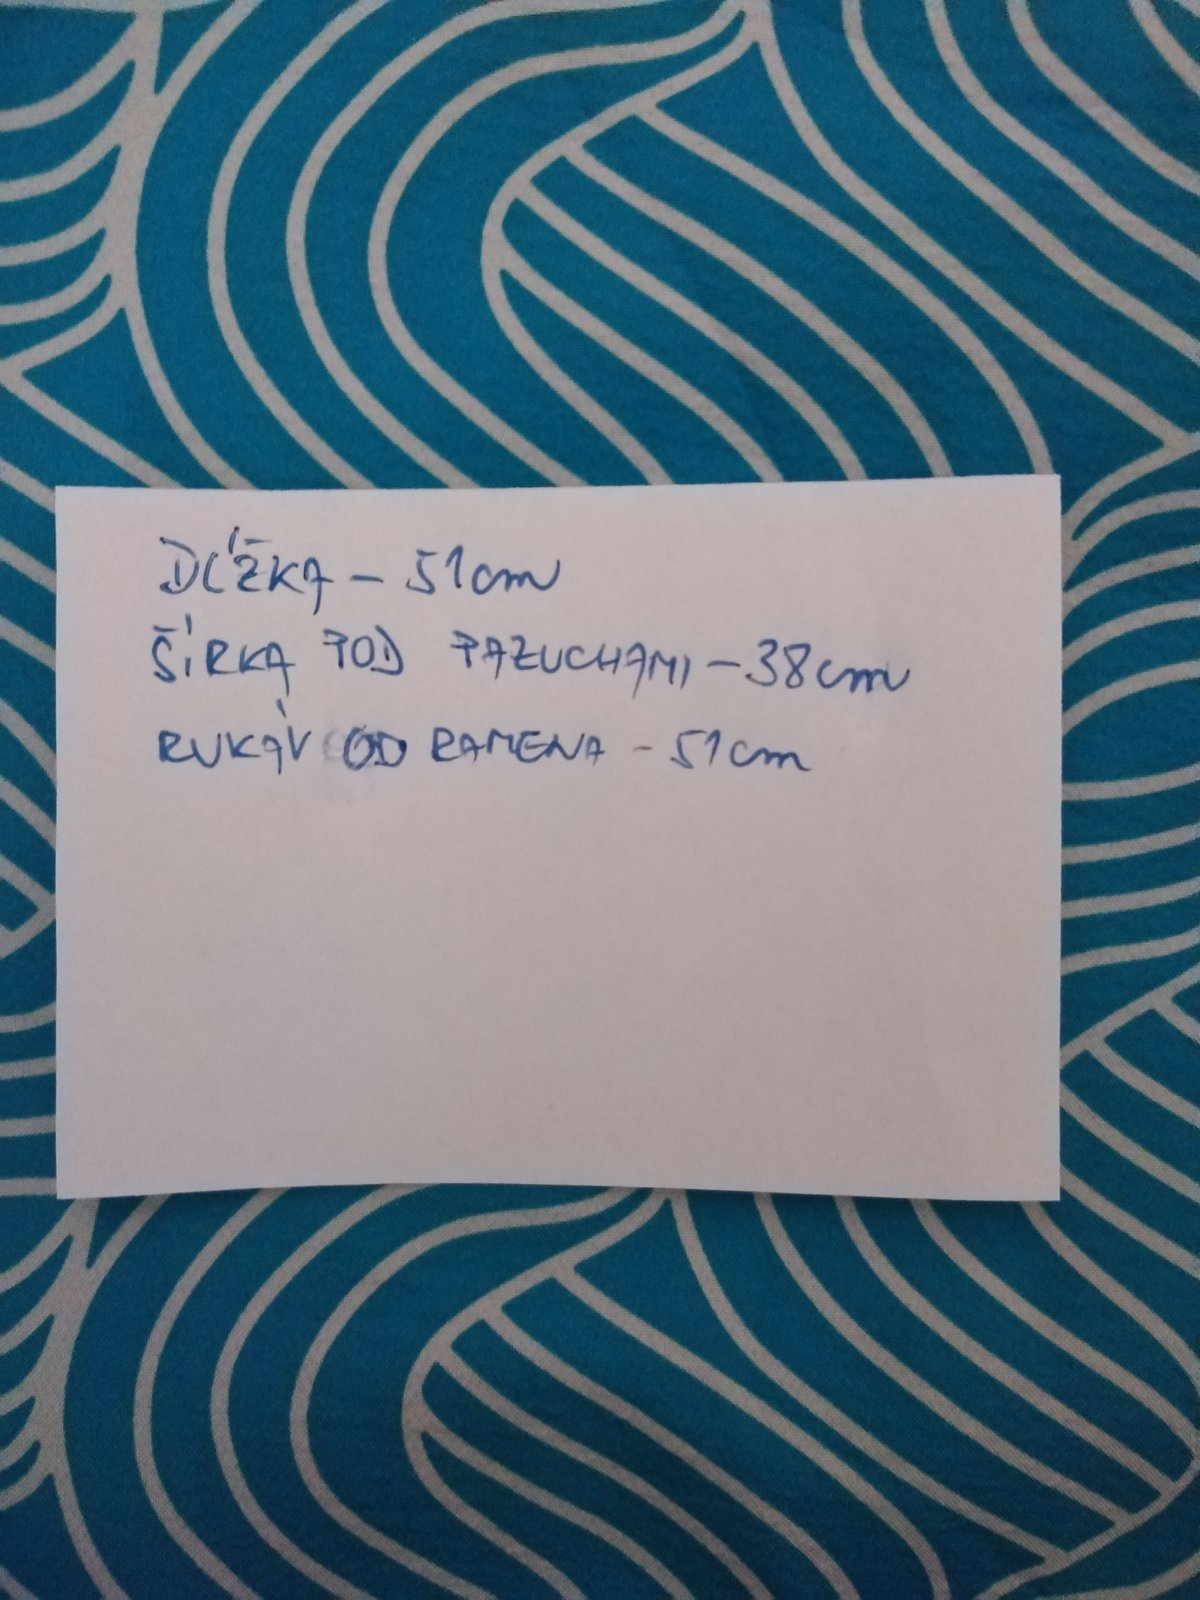 DĹŽKA – 51cm
ŠÍRKA POD PAZUCHAMI – 38cm
RUKÁV OD RAMENA – 51cm